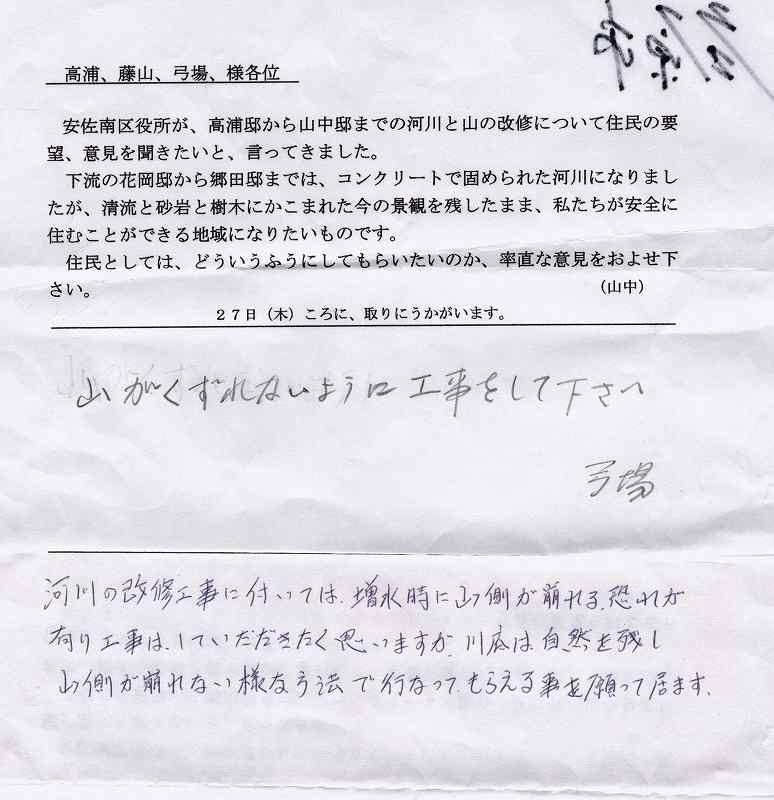 高浦、藤山、弓場、様各位
安佐南区役所が、高浦邸から山中邸までの河川と山の改修について住民の要
望、意見を聞きたいと、言ってきました。
下流の花岡邸から郷田邸までは、コンクリートで固められた河川になりまし
たが、清流と砂岩と樹木にかこまれた今の景観を残したまま、私たちが安全に
住むことができる地域になりたいものです。
住民としては、どういうふうにしてもらいたいのか、率直な意見をおよせ下
さい。 (山中)
27日(木)ころに、取りにうかがいます。
山がくずれないように工事をして下さい
弓場
河川の改修工事に付いては、増水時に山側が崩れる恐れが
有り工事は、していだだきたく思いますが、川底は自然を残し
山側が崩れない様な方法で行なって、もらえる事を願って居ます、